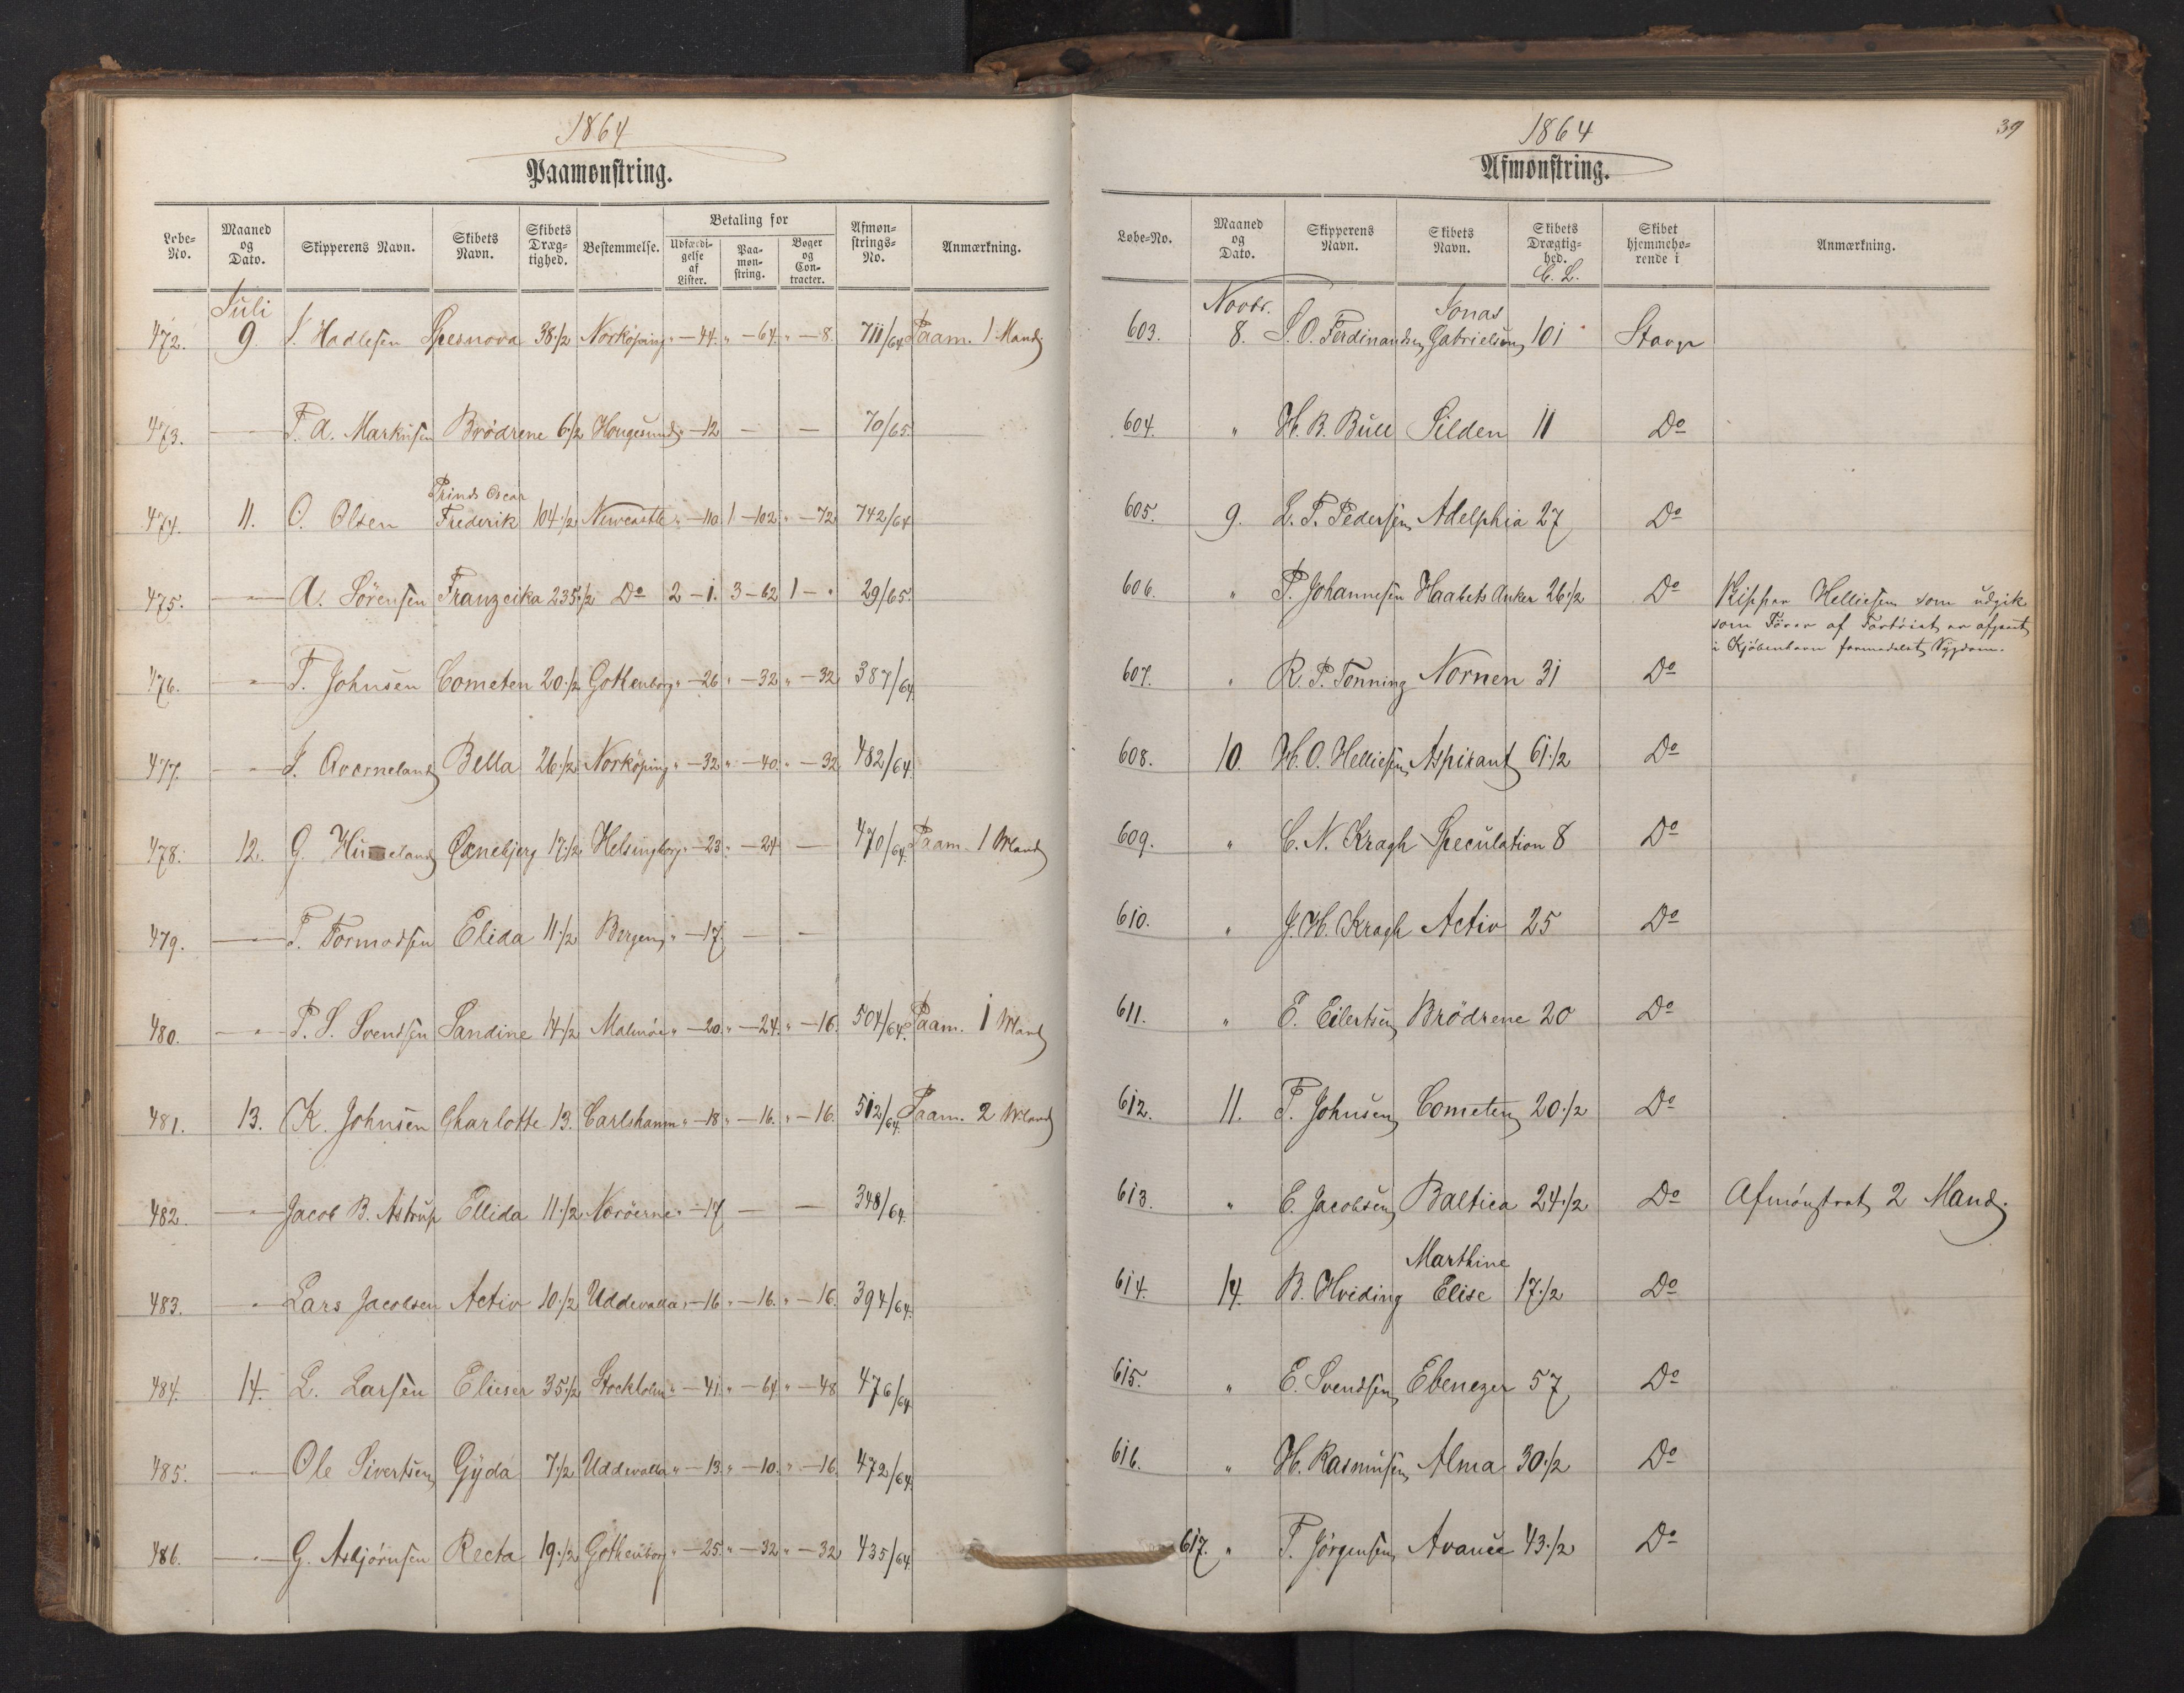 1864
Paamønstring.
Løbe-No. Maaned og Dato. Skipperens Navn. Skibets Navn. Skibets Dræg-tighed. Bestemmelse. Betaling for Udfærdi-gelse af Lister. Paa-møn-string. Bøger og Con-tracter. Afmøn-strings-No. Anmærkning.
Juli
472. 9. J. Hadlesen Spesnova 38 1/2 Norköping " - 44. " - 64. " - 8. 711/64 Paam. 1 Mand.
473. - " - T. A. Markusen Brödrene 6 1/2 Hougesund " - 12 - - 70/65.
Prinds Oscar
474. 11. O. Olsen Frederik 104 1/2 Newcastle " - 110 1 - 102 " - 72 742/64
475. - " - A. Sörensen Franzcika 235 1/2 Do 2 - 1. 3 - 62 1 - " 29/65.
476. - " - T. Johnsen Cometen 20 1/2 Gothenborg " - 26 " - 32 " - 32 387/64.
477. - " - J. Qverneland Bella 26 1/2 Norköping " - 32 " - 40. " - 32 482/64.
478. 12. G. Oxnebjerg 17 1/2 Helsingborg " - 23 " - 24 - 470/64. Paam. 1 Mand
479. - " - T. Tormodsen Elida 11 1/2 Bergen " - 17. - -
480. - " - P. S. Svendsen Sandine 14 1/2 Malmöe " - 20. " - 24. " - 16. 504/64. Paam. 1 Mand
481. 13. K. Johnsen Charlotte 13. Carlshamn " - 18 " - 16. " - 16. 512/64. Paam. 2 Mand
482. - " - Jacob B. Astrup Ellida 11 1/2 Noröerne " - 17 - - 348/64.
483. " Lars Jacobsen Activ 10 1/2 Uddevalla " - 16 " - 16. " - 16. 394/64.
484. 14. L. Larsen Elieser 35 1/2 Stockholm " - 41. " - 64 " - 48 476/64
485. - " - Ole Sivertsen Gyda 7 1/2 Uddevalla " - 13. " - 10. " - 16. 472/64.
486. - " - G. Asbjörnsen Recta 19 1/2 Gothenborg " - 25. " - 32 " - 32 435/64
39
1864
Afmønstring.
Løbe-No. Maaned og Dato. Skipperens Navn. Skibets Navn. Skibets Drægtig-hed. C. L. Skibet hjemmehø-rende i Anmærkning.
Novbr. Jonas
603. 8. S. O. Ferdinandsen Gabrielsen 101 Stavgr
604. " H. B. Bull Silden 11 Do
605. 9. L. T. Pedersen Adelphia 27 Do
606. " P. Johannesen Haabets Anker 26 1/2 Do Skipper Helliesen som udgik
som Förer af Fartöiet er afgaaet
i Kjöbenhavn formedelst Sygdom.
607. " R. P. Tonning Nornen 31 Do
608. 10. H. O. Helliesen Aspirant 61 1/2 Do
609. " C. N. Kragh Speculation 8 Do
610. " J. H. Kragh Activ 25 Do
611. " E. Eilertsen Brödrene 20 Do
612. 11. T. Johnsen Cometen 20 1/2 Do
613. " E. Jacobsen Baltica 24 1/2 Do Afmönstret 2 Mand.
Marthine
614. 14. B. Hviding Elise 17 1/2 Do
615. " E. Svendsen Ebenezer 57 Do
616. " H. Rasmusen Alma 30 1/2 Do
617. " T. Jörgensen Avance 43 1/2 Do